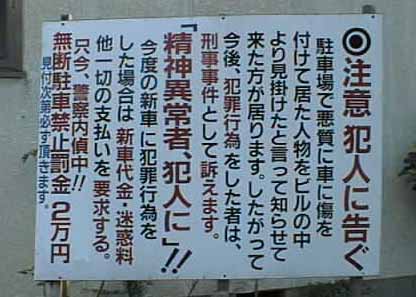 ◎注意 犯人に告ぐ
駐車場で悪質に車に傷を
付けて居た人物をビルの中
より見掛けたと言って知らせて
来た方が居ります。したがって
今後、犯罪行為をした者は、
刑事事件として訴えます。
『精神異常者、犯人に』!!
今度の新車に犯罪行為を
した場合は新車代金・迷惑料
他一切の支払いを要求する。
只今、警察内偵中!!
無断駐車禁止罰金2万円
見付次第必ず頂きます。